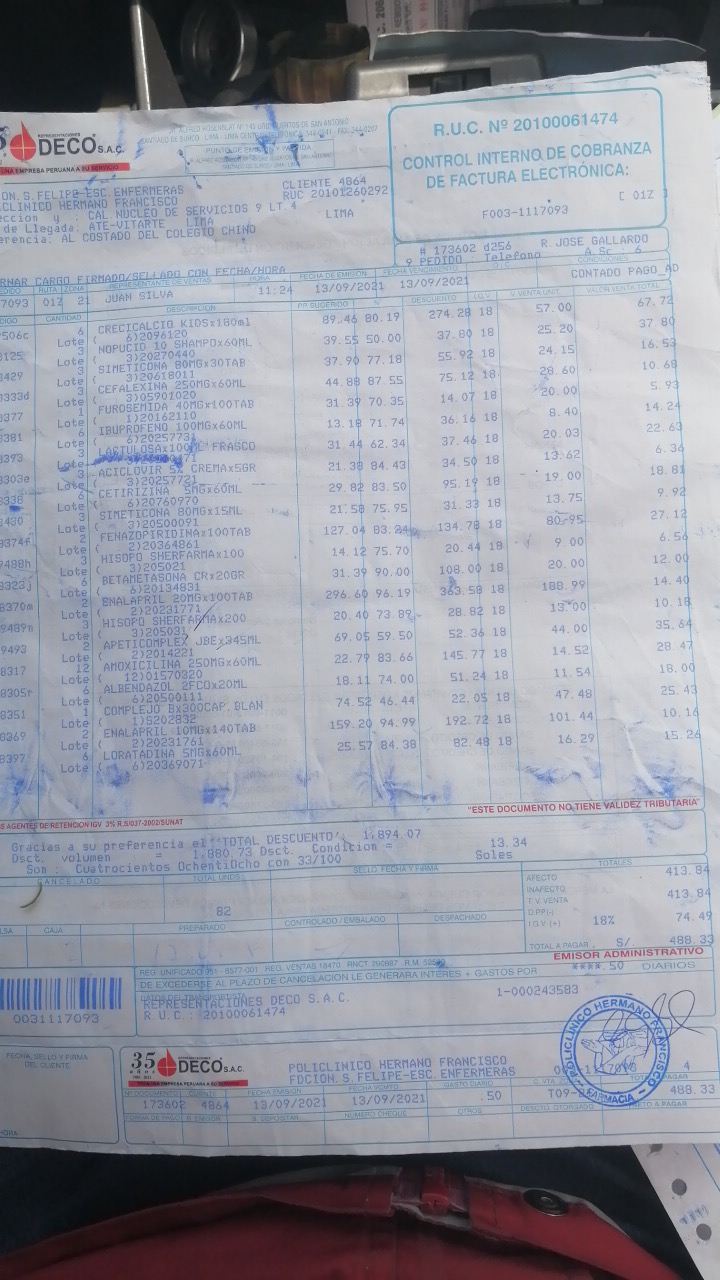 REPRESENTACIONES
DECO S.A.C.
UNA EMPRESA PERUANA A SU SERVICIO
R.U.C. Nº 20100061474
CONTROL INTERNO DE COBRANZA
DE FACTURA ELECTRÓNICA:
[ 01Z ]
F003-1117093
S. FELIPE-ESC. ENFERMERAS
CLIENTE 4864
HERMANO FRANCISCO
RUC 20101260292
CAL NUCLEO DE SERVICIOS 9 LT.4
LIMA
de Llegada: ATE-VITARTE LIMA
AL COSTADO DEL COLEGIO CHINO
# 173602 d256 R. JOSE GALLARDO
9 PEDIDO : Telefono
CARGO FIRMADO/SELLADO CON FECHA/HORA
RUTA ZONA REPRESENTANTE DE VENTAS FECHA DE EMISIÓN FECHA VENCIMIENTO O/C CONDICIONES
7093 01Z 21 JUAN SILVA 11:24 13/09/2021 13/09/2021 CONTADO PAGO AD
CANTIDAD DESCRIPCIÓN P.P. SUGERIDO % DESCUENTO I.G.V. V.VENTA UNIT. VALOR VENTA TOTAL
506c 6 CRECICALCIO KIDSx180ml 89.46 80.19 274.28 18 57.00 67.72
Lote ( 6)2096120
3125 3 NOPUCID 10 SHAMPOx60ML 39.55 50.00 37.80 18 25.20 37.80
Lote ( 3)20270440
3429 3 SIMETICONA 80MGx30TAB 37.90 77.18 55.92 18 24.15 16.53
Lote ( 3)20618011
333d 3 CEFALEXINA 250MGx60ML 44.88 87.55 75.12 18 28.60 10.68
Lote ( 3)05901020
3377 1 FUROSEMIDA 40MGx100TAB 31.39 70.35 14.07 18 20.00 5.93
Lote ( 1)20162110
3381 6 IBUPROFENO 100MGx60ML 13.18 71.74 36.16 18 8.40 14.24
Lote ( 6)2025773
3393 3 LACTULOSAx100ML FRASCO 31.44 62.34 37.46 18 20.03 22.63
Lote
3303e 3 ACICLOVIR 5% CREMAx5GR 21.38 84.43 34.50 18 13.62 6.36
Lote ( 3)20257721
338 6 CETIRIZINA 5MGx60ML 29.82 83.50 95.19 18 19.00 18.81
Lote ( 6)20760970
3430 3 SIMETICONA 80MGx15ML 21.58 75.95 31.33 18 13.75 9.92
Lote ( 3)20500091
2 FENAZOPIRIDINAx100TAB 127.04 83.24 134.78 18 80.95 27.12
Lote ( 2)20364861
9488h 3 HISOPO SHERFARMAx100 14.12 75.70 20.44 18 9.00 6.56
Lote ( 3)205021
6 BETAMETASONA CRx20GR 31.39 90.00 108.00 18 20.00 12.00
Lote ( 6)20134831
8370m 2 ENALAPRIL 20MGx100TAB 296.60 96.19 363.58 18 188.99 14.40
Lote ( 2)20231771
9489n 3 HISOPO SHERFARMAx200 20.40 73.89 28.82 18 13.00 10.18
Lote ( 3)205031
9493 2 APETICOMPLEX JBEx345ML 69.05 59.50 52.36 18 44.00 35.64
Lote ( 2)2014221
8317 12 AMOXICILINA 250MGx60ML 22.79 83.66 145.77 18 14.52 28.47
Lote ( 12)01570320
8305r 6 ALBENDAZOL 2FCOx20ML 18.11 74.00 51.24 18 11.54 18.00
Lote ( 6)20500111
8351 1 COMPLEJO Bx300CAP.BLAN 74.52 46.44 22.05 18 47.48 25.43
Lote ( 1)S202832
8369 2 ENALAPRIL 10MGx140TAB 159.20 94.99 192.72 18 101.44 10.16
Lote ( 2)20231761
8397 6 LORATADINA 5MGx60ML 25.57 84.38 82.48 18 16.29 15.26
Lote ( 6)20369071
AGENTES DE RETENCION IGV 3% R.S/037-2002/SUNAT
"ESTE DOCUMENTO NO TIENE VALIDEZ TRIBUTARIA"
Gracias a su preferencia el "TOTAL DESCUENTO" 1,894.07
Dsct. volumen = 1,880.73 Dsct. Condition = 13.34
Son : Cuatrocientos OchentiOcho con 33/100 Soles
CANCELADO TOTAL UNDS. SELLO, FECHA Y FIRMA TOTALES
82
AFECTO 413.84
INAFECTO
T.V. VENTA 413.84
D.PP(-)
I.G.V (+) 18% 74.49
TOTAL A PAGAR S/. 488.33
CAJA PREPARADO CONTROLADO / EMBALADO DESPACHADO
EMISOR ADMINISTRATIVO
DE EXCEDERSE AL PLAZO DE CANCELACION LE GENERARA INTERES + GASTOS POR ****.50 DIARIOS
REPRESENTACIONES DECO S.A.C. 1-000243583
R U C.: 20100061474
0031117093
FECHA, SELLO Y FIRMA
DEL CLIENTE
35 años
REPRESENTACIONES
DECO S.A.C.
POLICLINICO HERMANO FRANCISCO
FDCION.S.FELIPE-ESC.ENFERMERAS
POLICLINICO HERMANO FRANCISCO
FARMACIA
Nº DOCUMENTO CLIENTE FECHA EMISION FECHA VCMTO GASTO DIARIO
173602 4864 13/09/2021 13/09/2021 .50 488.33
FORMA DE PAGO B. EMISOR B. DEPOSITAR NUMERO CHEQUE OTROS DESCTO. OTORGADO NETO A PAGAR